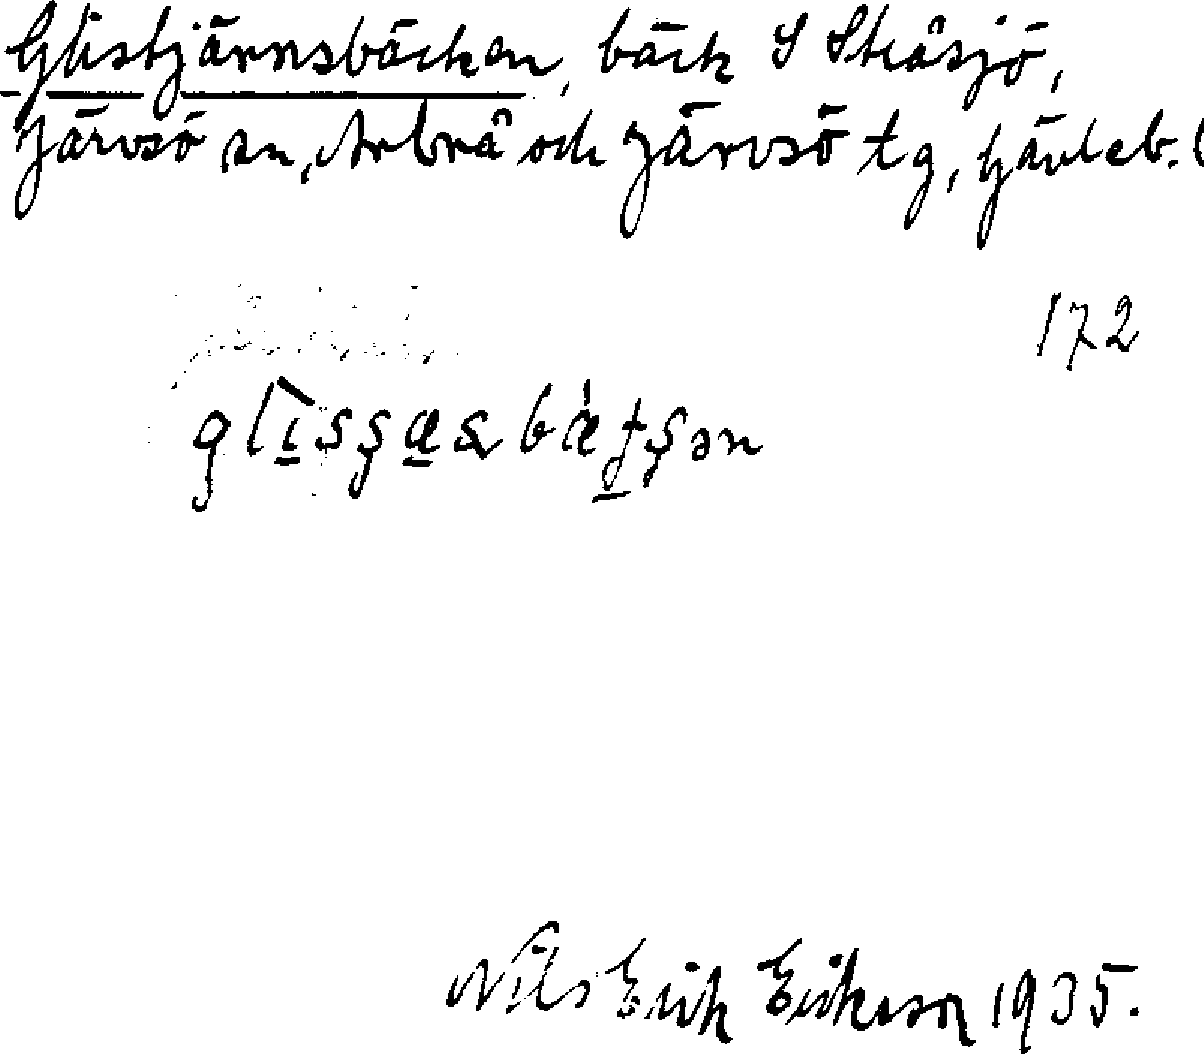 Glistjärnsbäcken, bäck S Stråsjö,
Järvsö sn, Arbrå och Järvsö tg, Gävleb.
172
Nils Erik Eriksson 1935.